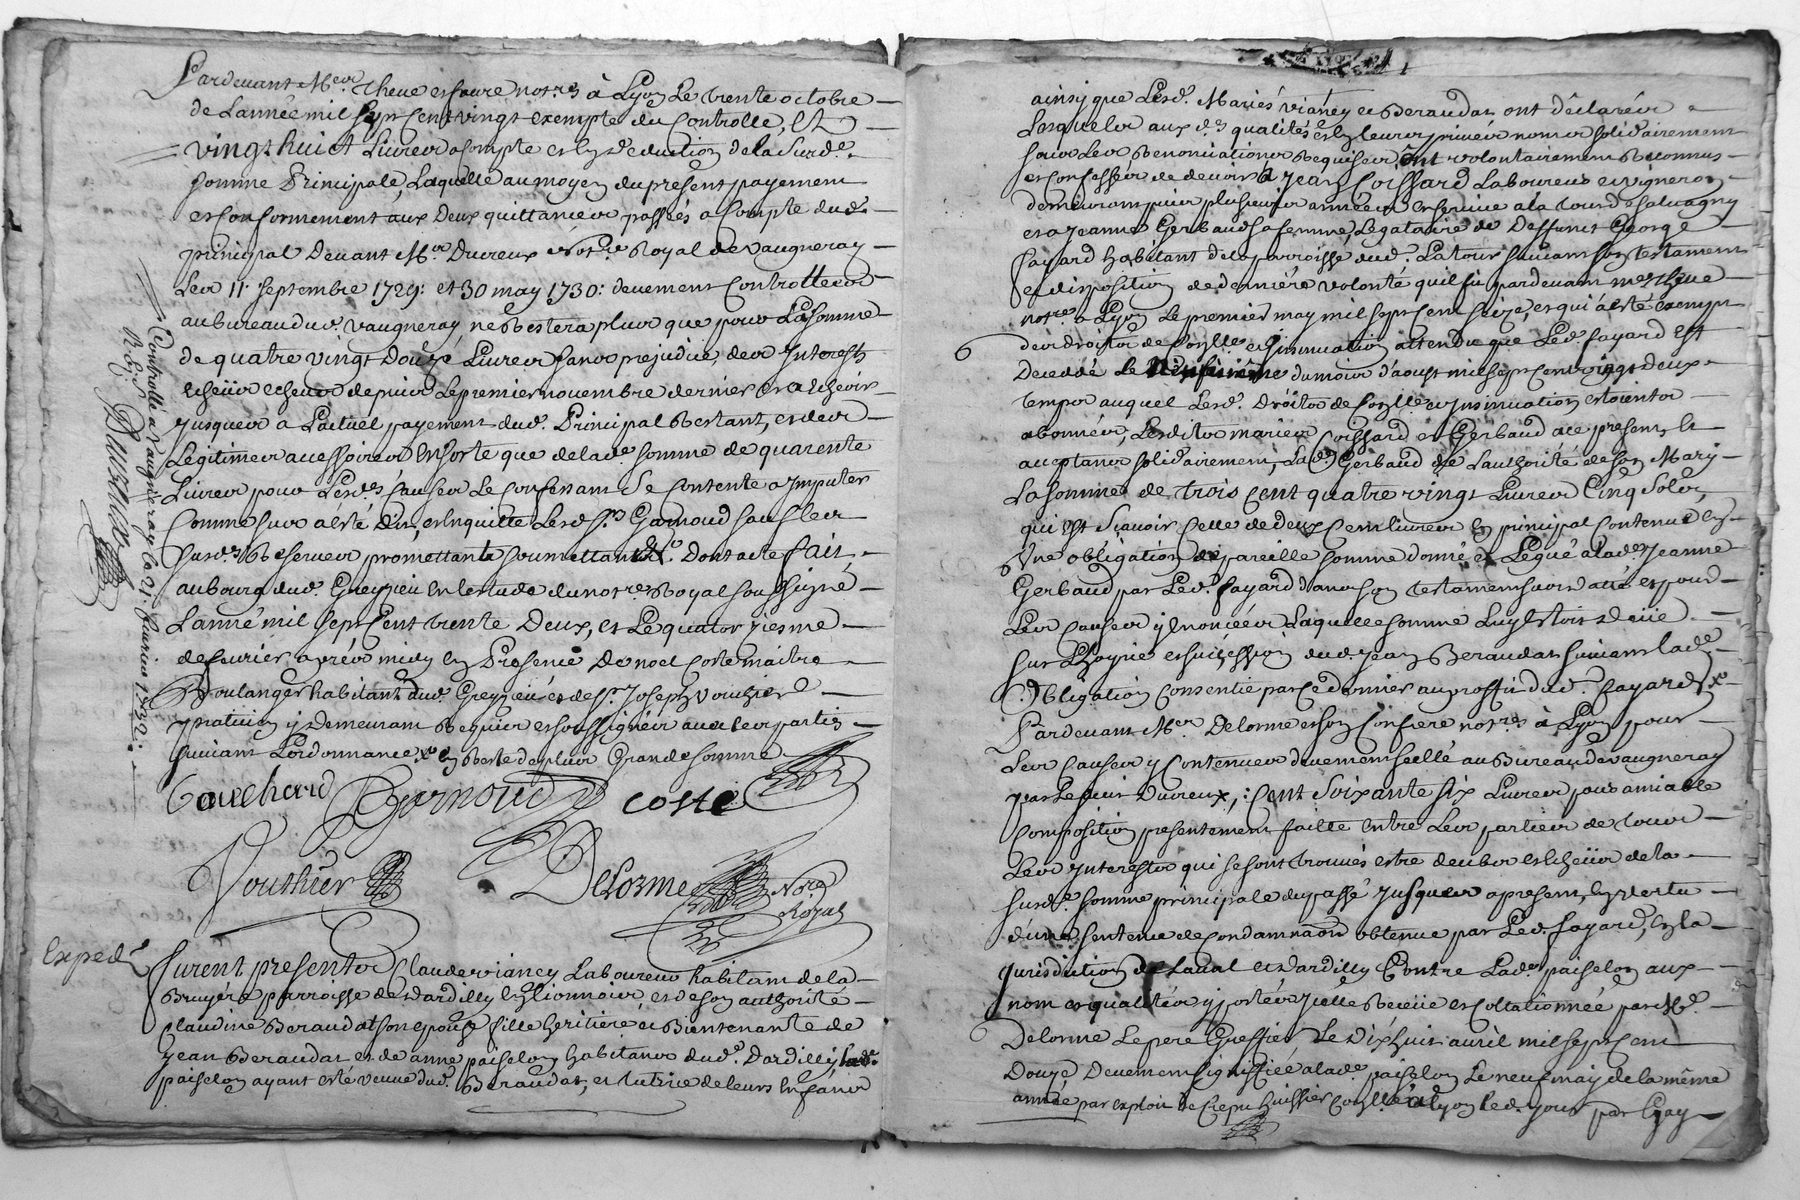 Pardevant Mes. Theve et faure notres à Lyon Le trente octobre
de L'année mil sept Cent vingt exempte du Controlle, Et
vingt huict Livres acompte et en deduction de la Surde.
somme Principale, Laquelle au moyen du present payement
et Conformement aux Deux quittances passées a Compte dud.
principal Devant Me. Ducreux Notre Royal de vaugneray
Les 11 septembre 1729: et 30 may 1730: deuement Controllees
au bureau dud. vaugneray ne Restera plus que pour La somme
de quatre vingt Douze Livres sans prejudice des Interests
Echeus depuis Le premier novembre dernier et a Echeoir
Jusques a L'actuel payement dud. Principal Restant, et des
Legitimes accessoires Ensorte que de lade somme de quarente
Livres pour Lesdes causes Le Confessant Se Contente a Imputer
Comme sus a été dit, et En quitte Lesd. Srs Garnoud sauf les
susdes Reserves promettant soumettant &c. Dont acte fait
au bourg dud. Grezieu En L'estude du notre Royal soussigné
L'anné mil sept Cent trente Deux, et Le quatorziesme
de feurier aprés midy En Presence De noel Coste maitre
Boulanger habitant aud. Grezieu et de Sr. Joseph Vouthier
praticien y Demeurant Requis et soussignés avec les parties
suivant L'ordonnance x en Reste de plus Grande somme
Couchard Garnoud Coste
Vouthier Delorme Nore
Royal
Controllé a Vaugneray Le 21. feurier 1732:
Ducreux
Exped.
Furent presents Claude vianey Laboureur habitant de la
Bruyére parroisse de Dardilly En Lionnois, et de son authorité
Claudine Beraudat son epouse fille heritiére et Bientenante de
Jean Beraudat et de anne paiselon habitans dud. Dardilly, lade.
paiselon ayant esté veuve dud. Beraudat, et tutrice de leurs Enfans
ainsy que Lesd. Mariés vianey et Beraudat ont déclarés
Lesquels aux des qualités et En leurs privés noms solidairement
sous Les Renonciations Requises, ont volontairement Reconnus
et Confessés de devoir à Jean Coissard Laboureur et vigneron
demeurant puis plusieurs années En service a la tour de salvagny
et a Jeanne Gerbaud sa femme, Legataire de Deffunct George
fayard habitant de la parroisse dud. La tour suivant son testament
et disposition de derniére volonté qu'il fit pardevant me theve
notre a Lyon Le premier may mil sept cent seize, et qui a esté exempt
des droits de Conlle et Insinuation attendu que Led. fayard Est
Decedé Le du mois d'aoust mil sept cent vingt deux
temps auquel Lesd. Droits de Conlle et Insinuation estoients
abonnés, Lesdits mariés Coissard et Gerbaud ace present, Et
acceptans solidairement, Lade Gerbaud de L'authorité de son Mary
La somme de trois cent quatre vingt Livres Cinq Sols,
qui Est Sçavoir Celle de deux Cent livres En principal Contenue En
Une obligation de pareille somme donné et Legué alade Jeanne
Gerbaud par Led. fayard dans son testament sus datté et pour
Les causes y Enoncées Laquelle somme Luy Estoit deüe
sur L'hoyrie et succession dud. Jean Beraudat suivant lade
Obligation Consentie par Ce dernier au proffit dud. fayard x
Pardevant Me. Delorme et son Confrere notres à Lyon pour
Les causes y Contenues deuement scellé au Bureau de vaugneray
par Le sieur Ducreux, : Cent Soixante six Livres pour amiable
Composition presentement faitte Entre Les parties de tous
Les Interests qui se sont trouvés estre deubs et Echeüs de la
susde. somme principale du passé Jusques a present, En vertu
d'une sentence de Condamnaon obtenue par Led. fayard, En la
Jurisdiction de Laval et Dardilly Contre Lade. paiselon aux
nom et qualités y portés Icelle Receüe et Collationnée par Me.
Delorme Le pere Greffier Le Dix huit avril mil sept cent
Douze Deuement signiffiée alade. paiselon Le neuf may de la même
année par exploit de huissier Conllé a Lyon led. jour par Gay